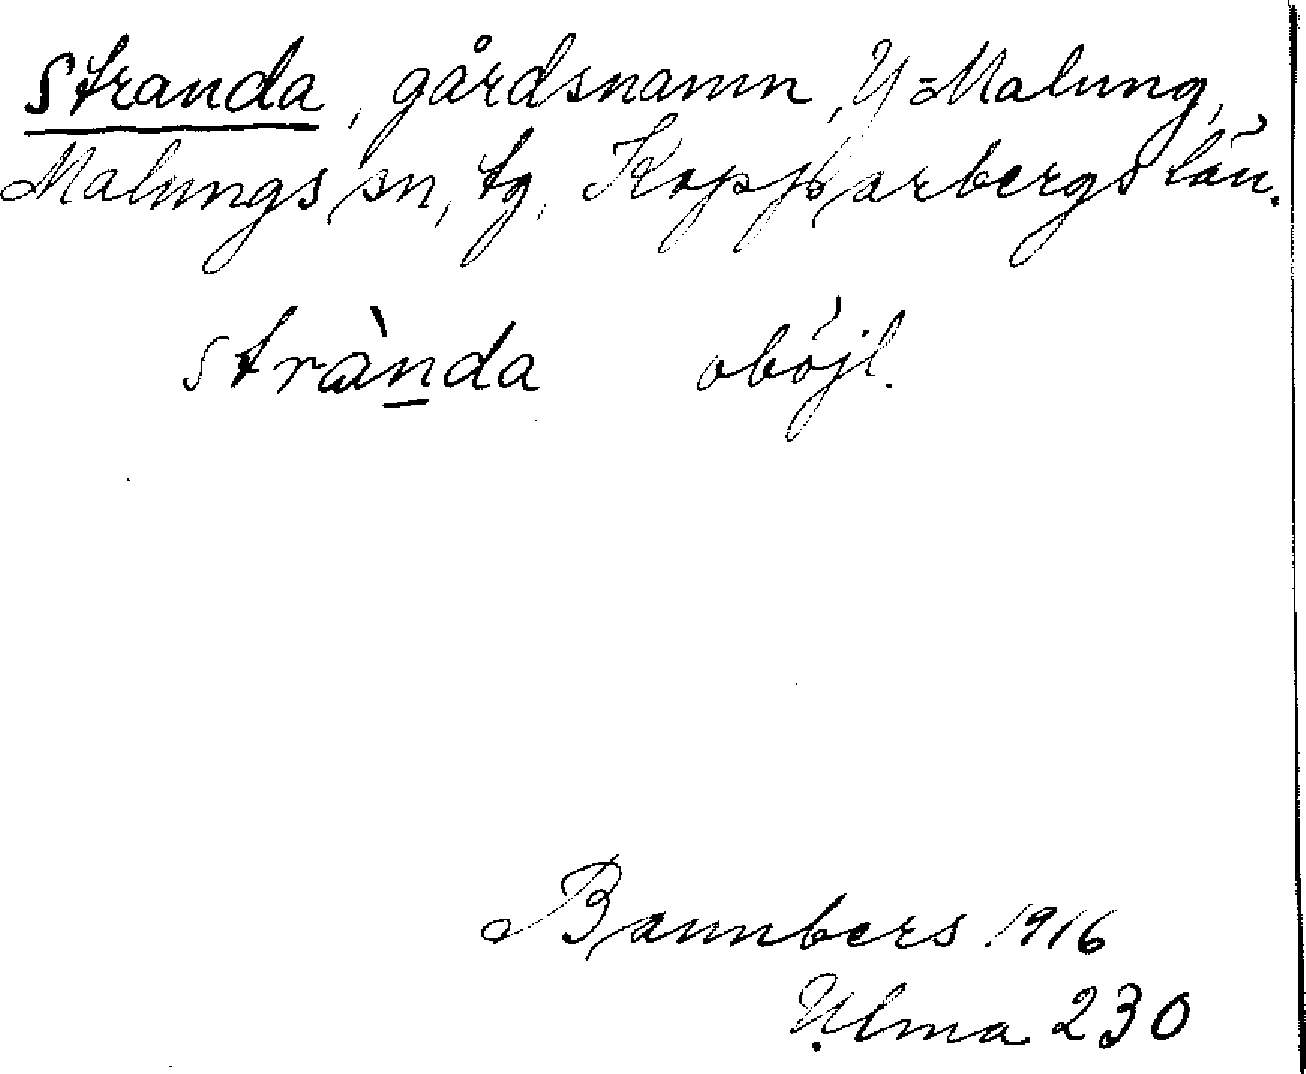 Stranda, gårdsnamn, Y-Malung,
Malungs sn, tg, Kopparbergs län.
strànda oböjl.
Bannbers 1916
Ulma 230